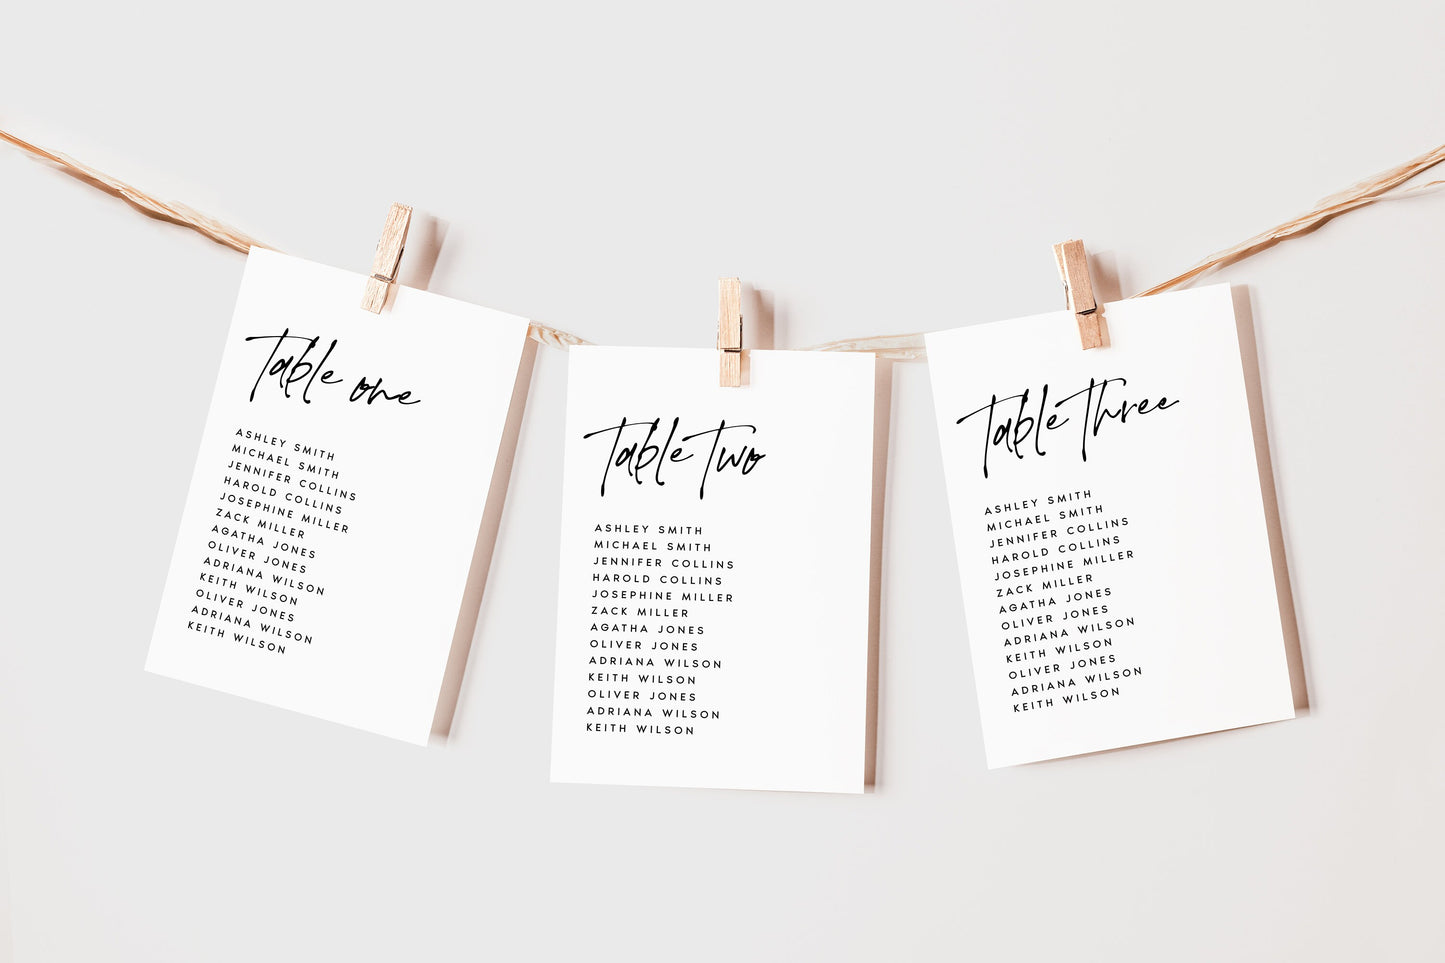 Table one
ASHLEY SMITH
MICHAEL SMITH
JENNIFER COLLINS
HAROLD COLLINS
JOSEPHINE MILLER
ZACK MILLER
AGATHA JONES
OLIVER JONES
ADRIANA WILSON
KEITH WILSON
OLIVER JONES
ADRIANA WILSON
KEITH WILSON
Table Two
ASHLEY SMITH
MICHAEL SMITH
JENNIFER COLLINS
HAROLD COLLINS
JOSEPHINE MILLER
ZACK MILLER
AGATHA JONES
OLIVER JONES
ADRIANA WILSON
KEITH WILSON
OLIVER JONES
ADRIANA WILSON
KEITH WILSON
Table Three
ASHLEY SMITH
MICHAEL SMITH
JENNIFER COLLINS
HAROLD COLLINS
JOSEPHINE MILLER
ZACK MILLER
AGATHA JONES
OLIVER JONES
ADRIANA WILSON
KEITH WILSON
OLIVER JONES
ADRIANA WILSON
KEITH WILSON